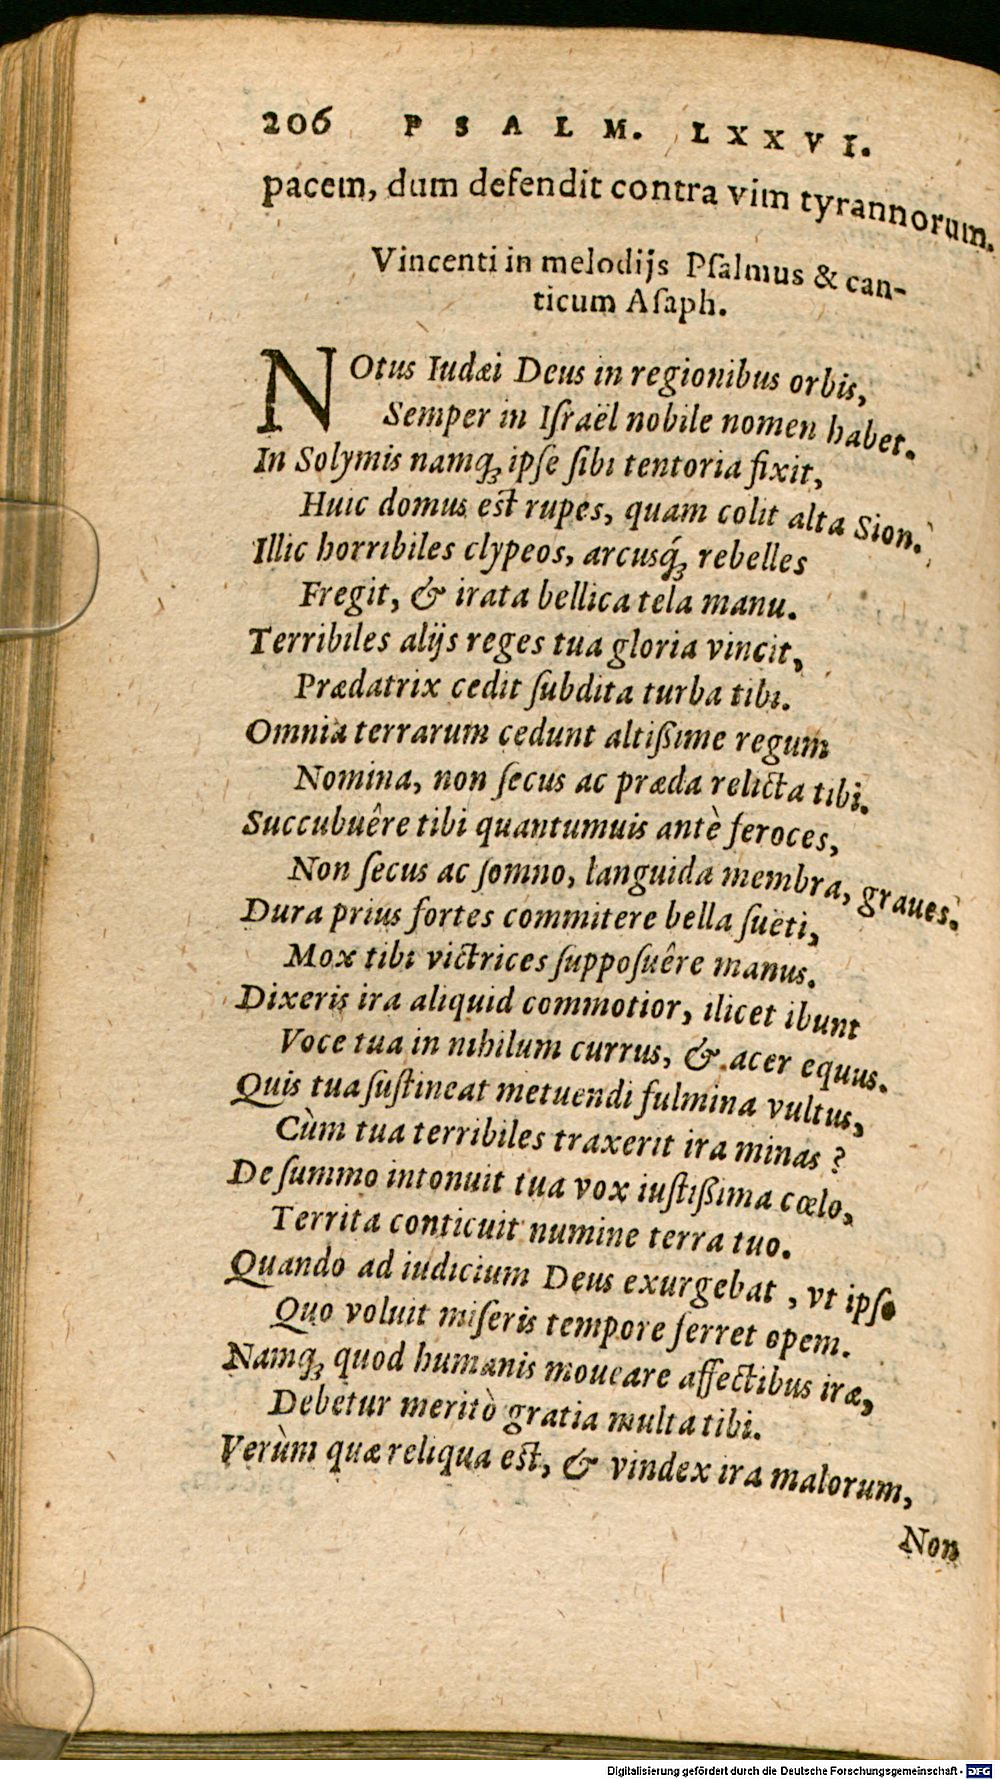 206 PSALM. LXXVI.
pacem, dum defendit contra vim tyrannorum.
Vincenti in melodijs Pſalmus & can-
ticum Aſaph.
NOtus Iudæi Deus in regionibus orbis,
Semper in Iſraël nobile nomen habet.
In Solymis namq; ipſe ſibi tentoria fixit,
Huic domus est rupes, quam colit alta Sion.
Illic horribiles clypeos, arcusq́; rebelles
Fregit, & irata bellica tela manu.
Terribiles alijs reges tua gloria vincit,
Prædatrix cedit ſubdita turba tibi.
Omnia terrarum cedunt altißime regum
Nomina, non ſecus ac præda relicta tibi.
Succubuêre tibi quantumuis antè feroces,
Non ſecus ac ſomno, languida membra, graues.
Dura prius fortes commitere bella ſueti,
Mox tibi victrices ſuppoſuêre manus.
Dixeris ira aliquid commotior, ilicet ibunt
Voce tua in nihilum currus, & acer equus.
Quis tua ſuſtineat metuendi fulmina vultus,
Cùm tua terribiles traxerit ira minas?
De ſummo intonuit tua vox iuſtißima cœlo,
Territa conticuit numine terra tuo.
Quando ad iudicium Deus exurgebat, vt ipſe
Quo voluit miſeris tempore ferret opem.
Namq; quod humanis moueare affectibus iræ,
Debetur meritò gratia multa tibi.
Verùm quæ reliqua est, & vindex ira malorum,
Non
Digitalisierung gefördert durch die Deutsche Forschungsgemeinschaft - DFG